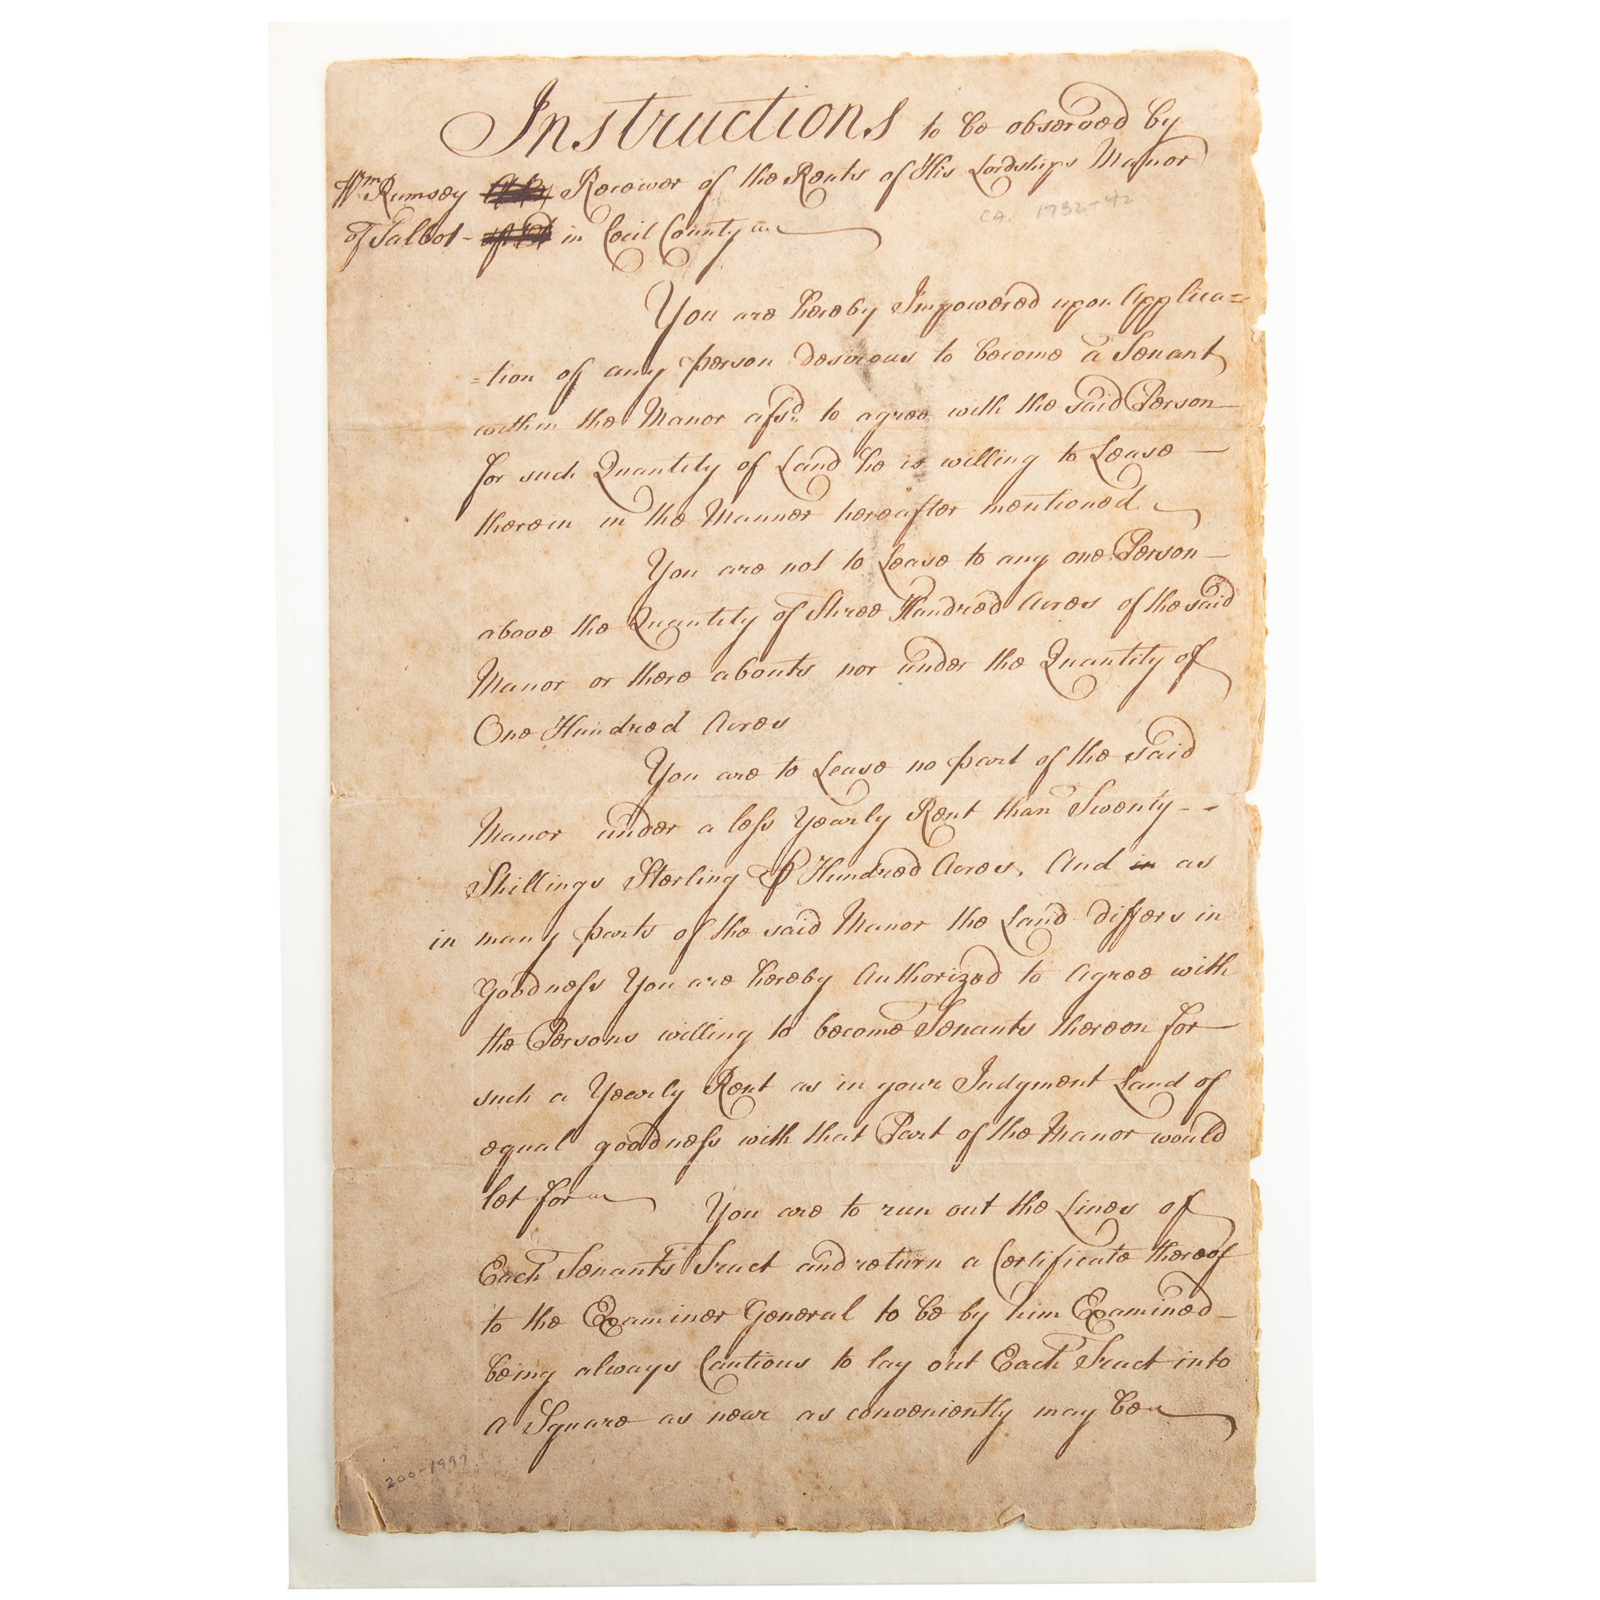 Instructions to be observed by
Wm Rumsey Receiver of the Rents of His Lordships Manor
CA. 1732-42
of Talbot - in Cecil County
You are hereby Impowered upon Applica=
=tion of any person desirous to become a Tenant
within the Manor afsd. to agree with the said Person
for such Quantity of Land he is willing to Lease
therein in the Manner hereafter mentioned
You are not to Lease to any one Person
above the Quantity of Three Hundred Acres of the said
Manor or there abouts nor under the Quantity of
One Hundred Acres
You are to Lease no part of the said
Manor under a less Yearly Rent than Twenty - -
Shillings Sterling ⅌ Hundred Acres, And in as
in many parts of the said Manor the Land differs in
Goodness You are hereby Authorized to Agree with
the Persons willing to become Tenants thereon for
such a Yearly Rent as in your Judgment Land of
equal goodness with that Part of the Manor would
let for You are to run out the Lines of
Each Tenants Tract and return a Certificate thereof
to the Examiner General to be by him Examined
being always Cautious to lay out Each Tract into
a Square as near as conveniently may be
200-1997